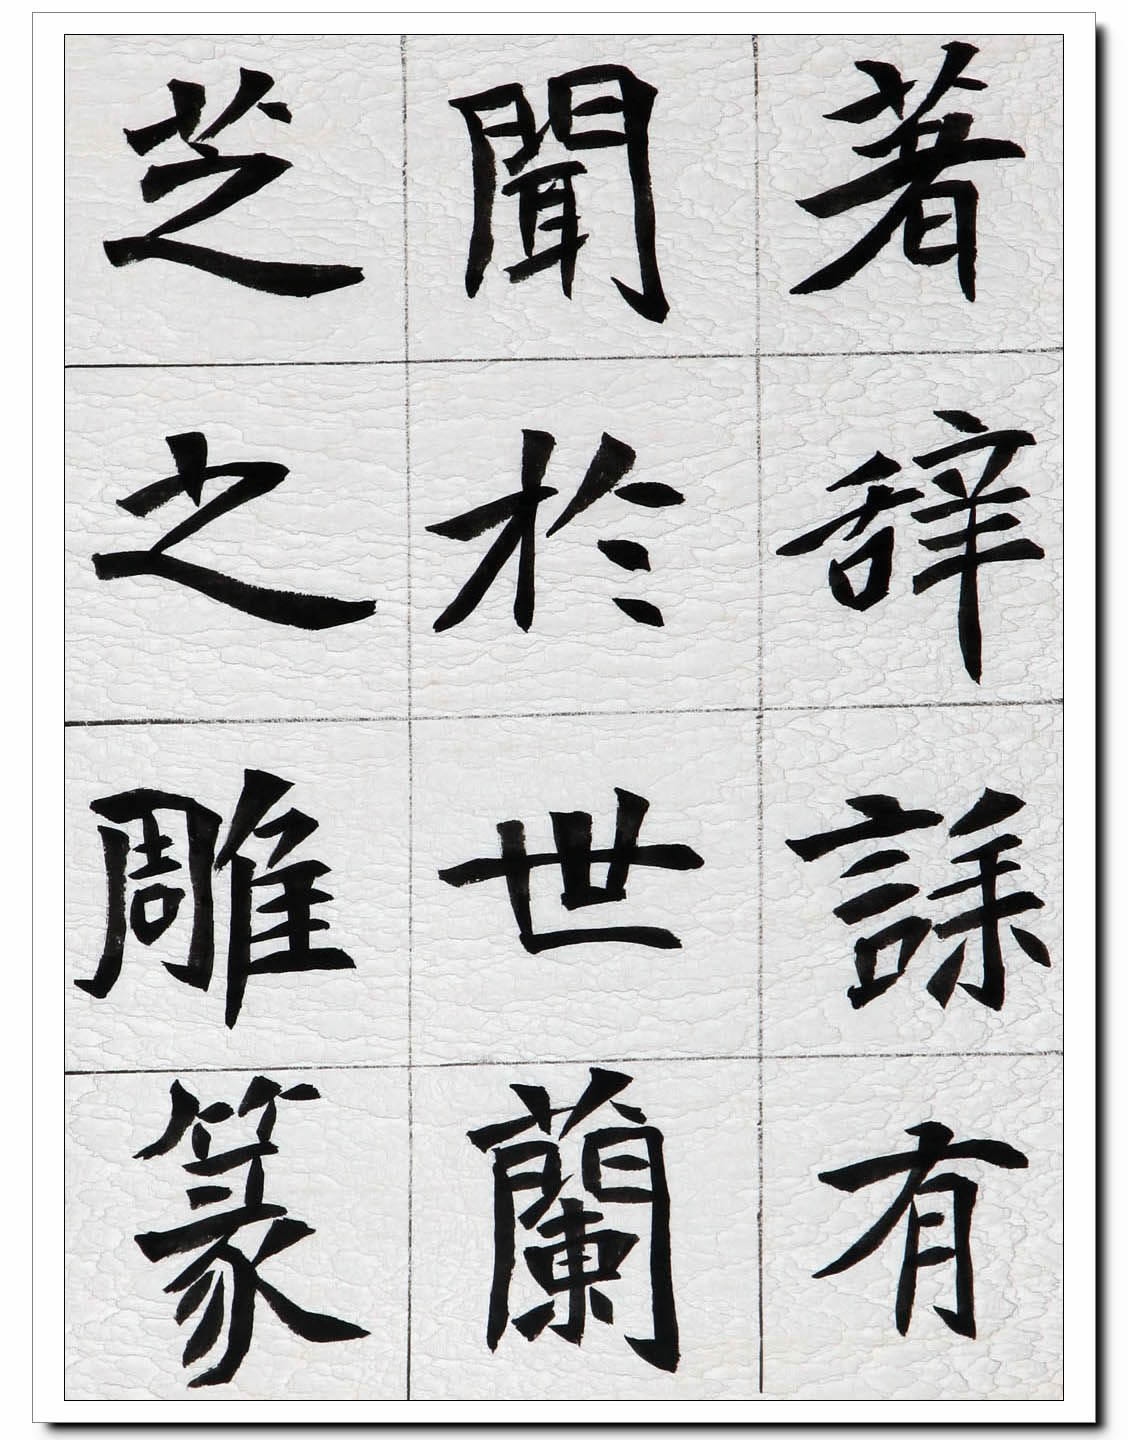 著辞誄有
聞於世蘭
芝之雕篆